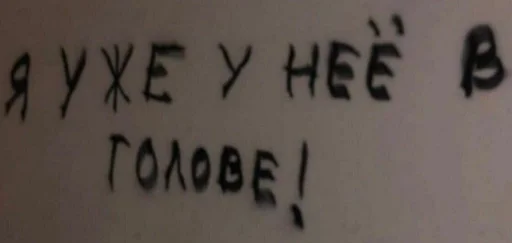 Я УЖЕ У НЕЁ В
ГОЛОВЕ!